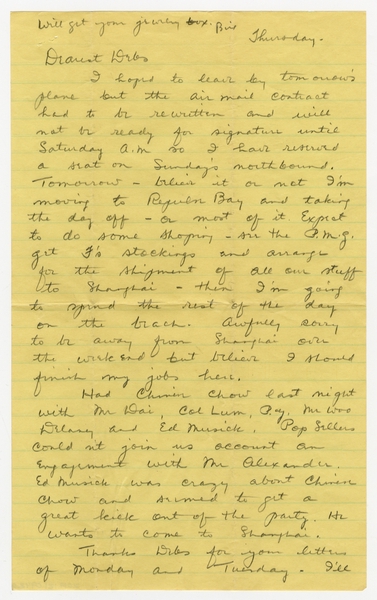 Will get your jewelry box. Bix
Thursday.
Dearest Debs
I hoped to leave by tomorrow's
plane but the air mail contract
had to be rewritten and will
not be ready for signature until
Saturday A.M. so I have reserved
a seat on Sunday's northbound.
Tomorrow - believe it or not I'm
moving to Repulse Bay and taking
the day off - or most of it Expect
to do some shopping - see the P.M.G.
get F's stockings and arrange
for the shipment of all our stuff
to Shanghai - then I'm going
to spend the rest of the day
on the beach. Awfully sorry
to be away from Shanghai over
the week end but believe I should
finish my jobs here.
Had Chinese Chow last night
with Mr Dai, Col Lum, Mr Woo
Delaney and Ed Musick. Pop Sellers
couldn't join us account an
Engagement with Mr Alexander.
Ed Musick was crazy about Chinese
Chow and seemed to get a
great kick out of the party. He
wants to come to Shanghai.
Thanks Debs for your letters
of Monday and Tuesday. I'll